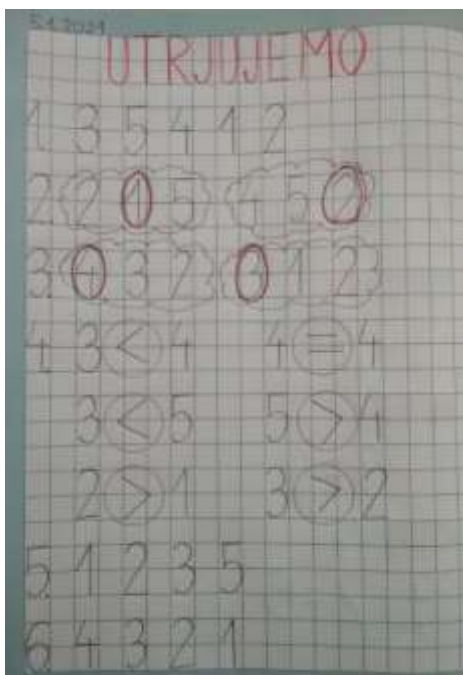 5.1.2021
UTRJUJEMO
1. 3 5 4 1 2
2. 2 1 5 4 5 2
3. 4 3 2 3 1 2
4. 3 < 4 4 = 4
3 < 5 5 > 4
2 > 1 3 > 2
5. 1 2 3 5
6. 4 3 2 1